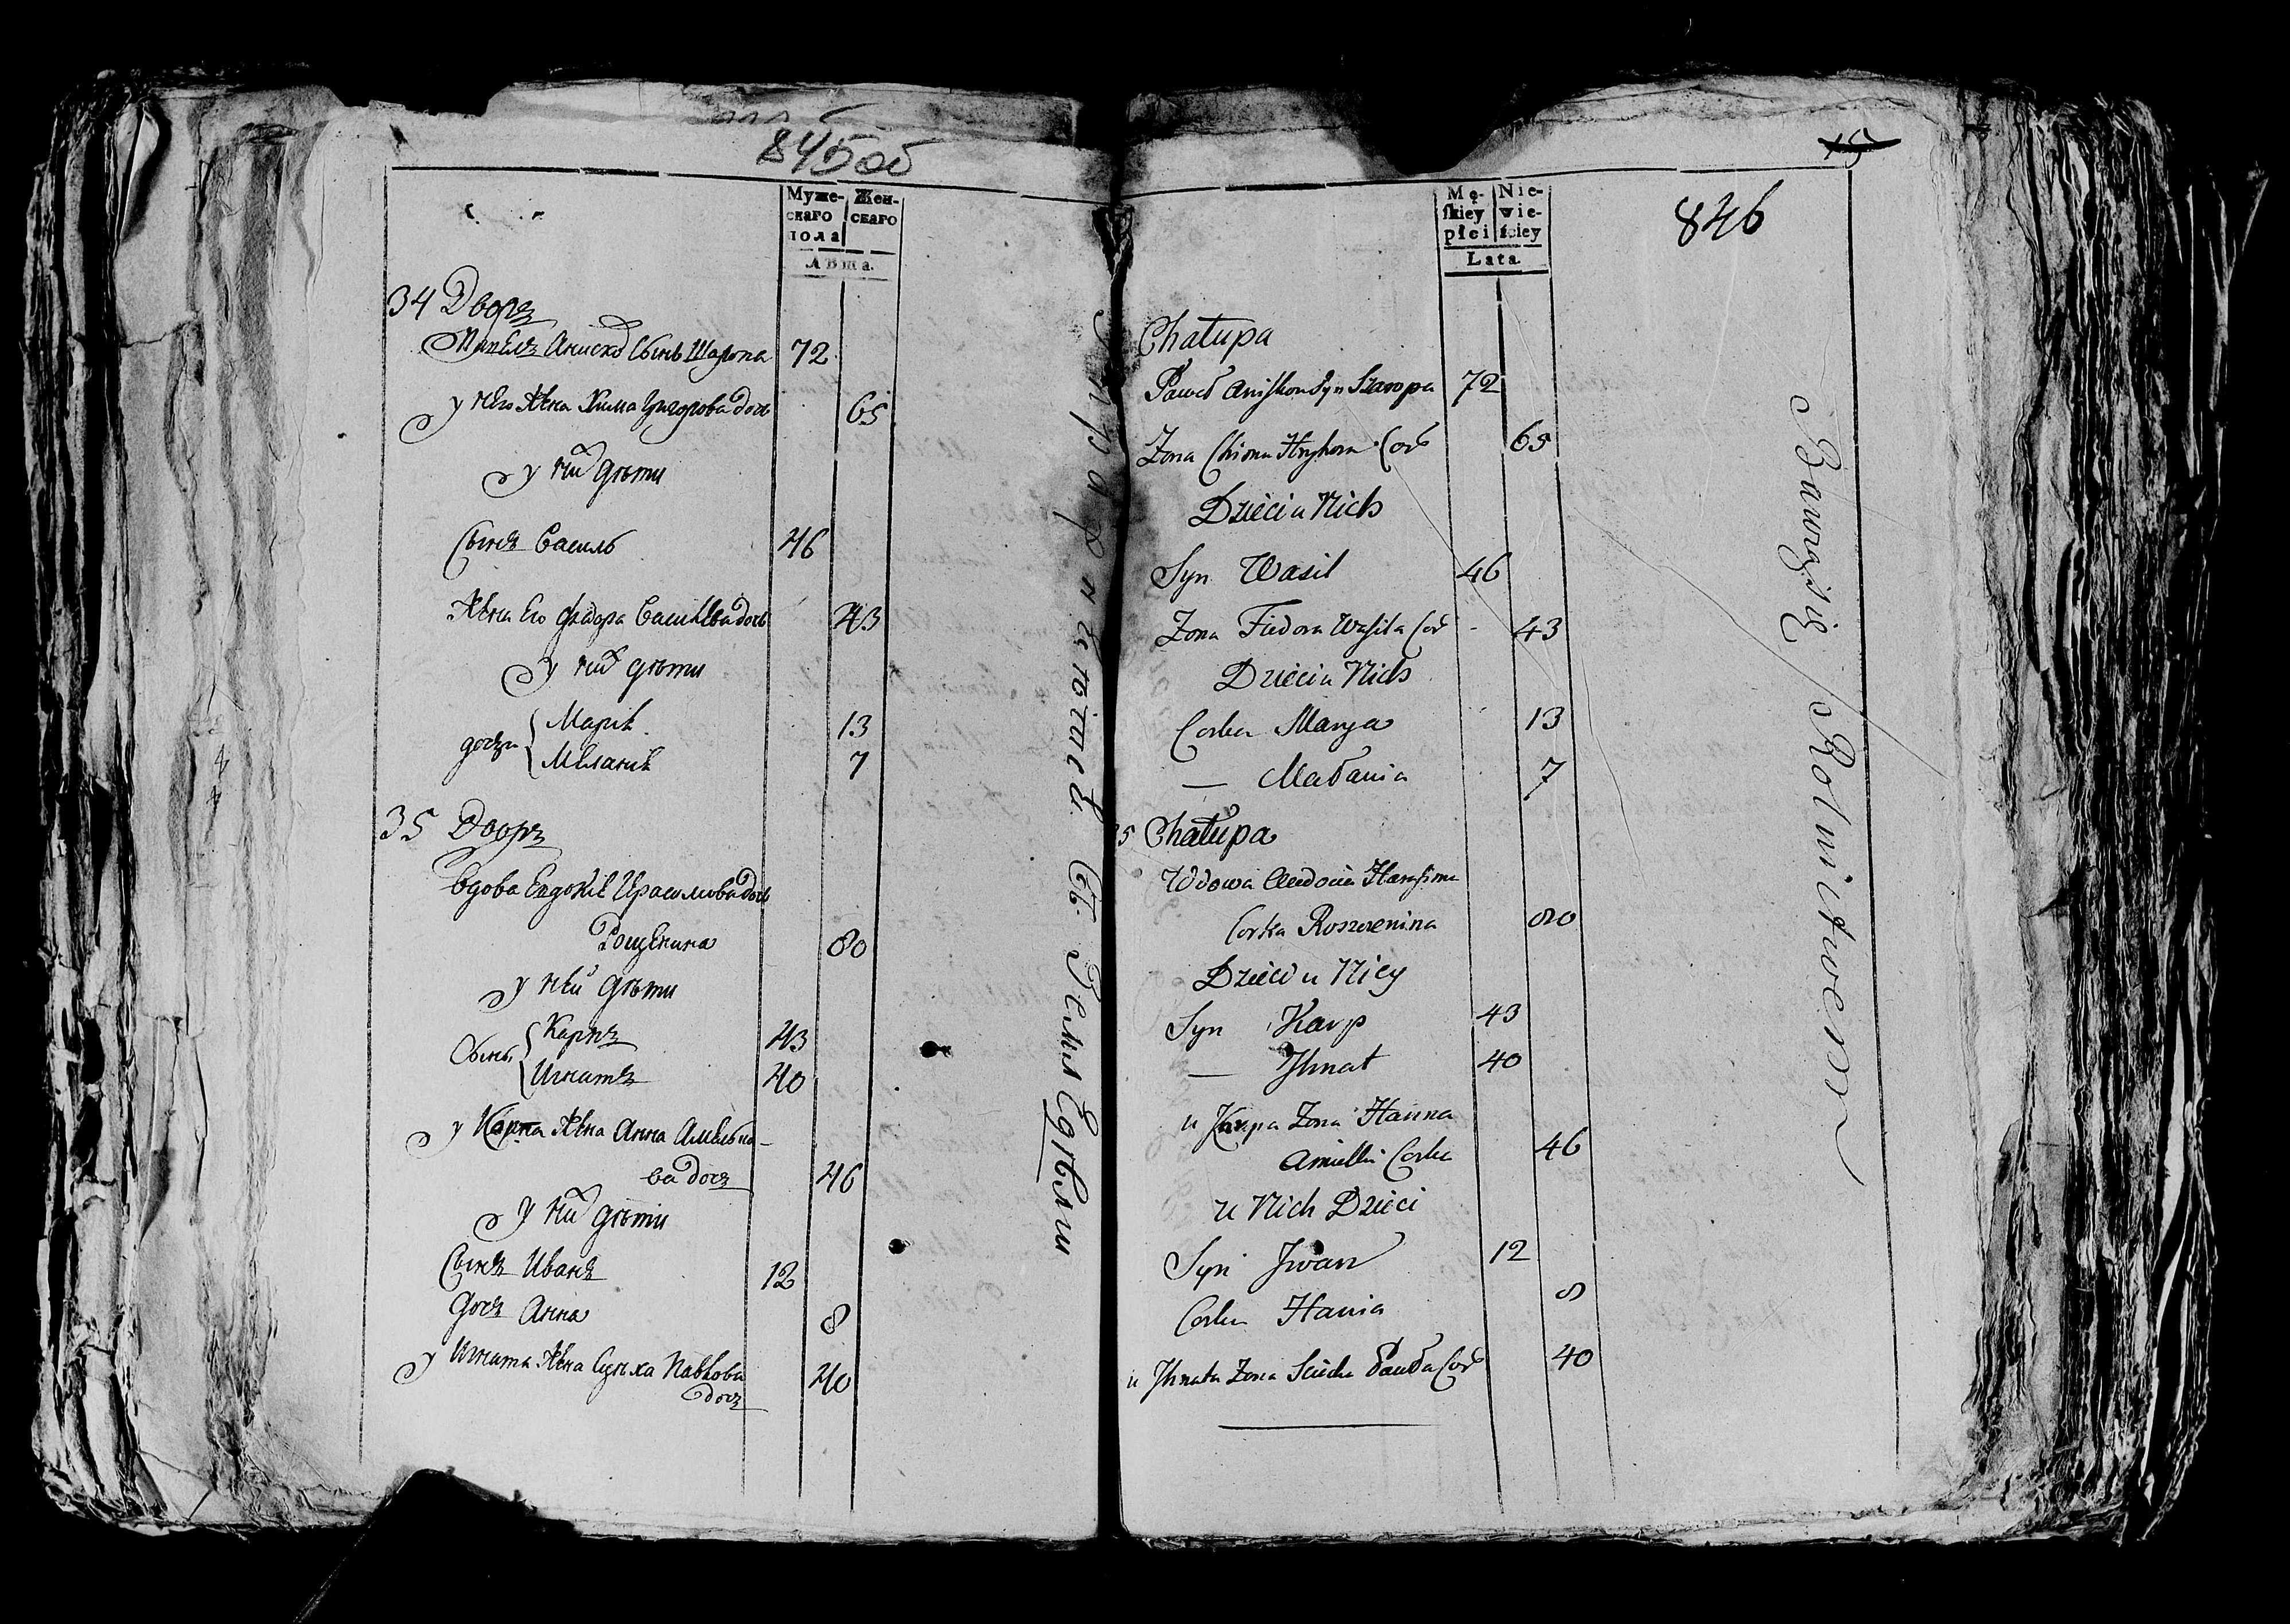 845об
Муже-
скаго
пола
Жен-
скаго
Лѣта.
34 Дворъ
Павелъ Аниско сынъ Шарпа 72
у него жена Хима Григорова дочь 65
у них дѣти
Сынъ Василь 46
жена Его Федора Васильева дочь 43
у них дѣти
дочери Марiя 13
Меланiя 7
35 Дворъ
Вдова Евдокiя Ирасимова дочь
Рощенина 80
у ней дѣти
Сынъ Карпъ 43
Игнатъ 40
у Карпа жена Анна Амельно-
ва дочь 46
у них дѣти
Сынъ Иванъ 12
дочь Анна 8
у Игната жена Сцепха Павлова
дочь 40
Съ. Земли Судьями
15
846
Mę-
skiey
płci
Nie-
wie-
ściey
Lata
Chałupa
Paweł Aniskow Syn Szarpa 72
Zona Chima Hryhora Cor 65
Dzieci u Nich
Syn Wasil 46
Zona Fiedora Wasila Cor - 43
Dzieci u Nich
Corka Marya 13
— Małania 7
35 Chałupa
Wdowa Awdocia Harasima
Corka Roszczenina 80
Dzieci u Niey
Syn Karp 43
— Jhnat 40
u Karpa Zona Hanna
Amielki Corka 46
u Nich Dzieci
Syn Jwan 12
Corka Hania 8
u Jhnata Zona Sciecha Pawła Cor 40
Rotmistrzem